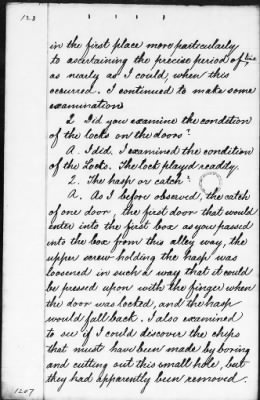 123
in the first place more paiticularly
to ascertaining the precise period of time
as nearly as I could, when this
occurred. I continued to make some
examinations
Q. Did you examine the condition
of the locks on the doors?
A. I did. I examined the condition
of the Locks. The lock played readily.
Q. The hasp or catch?
A. As I before observed, the catch
of one door, the first door that would
enter into the first box as you passed
into the box from this alley way, the
upper screw holding the hasp was
loosened in such a way that it could
be pressed upon with the finger when
the door was locked, and the hasp
would fall back. I also examined
to see if I could discover the chips
that must have been made by boring
and cutting out this small hole, but
they had apparently been removed.
1207